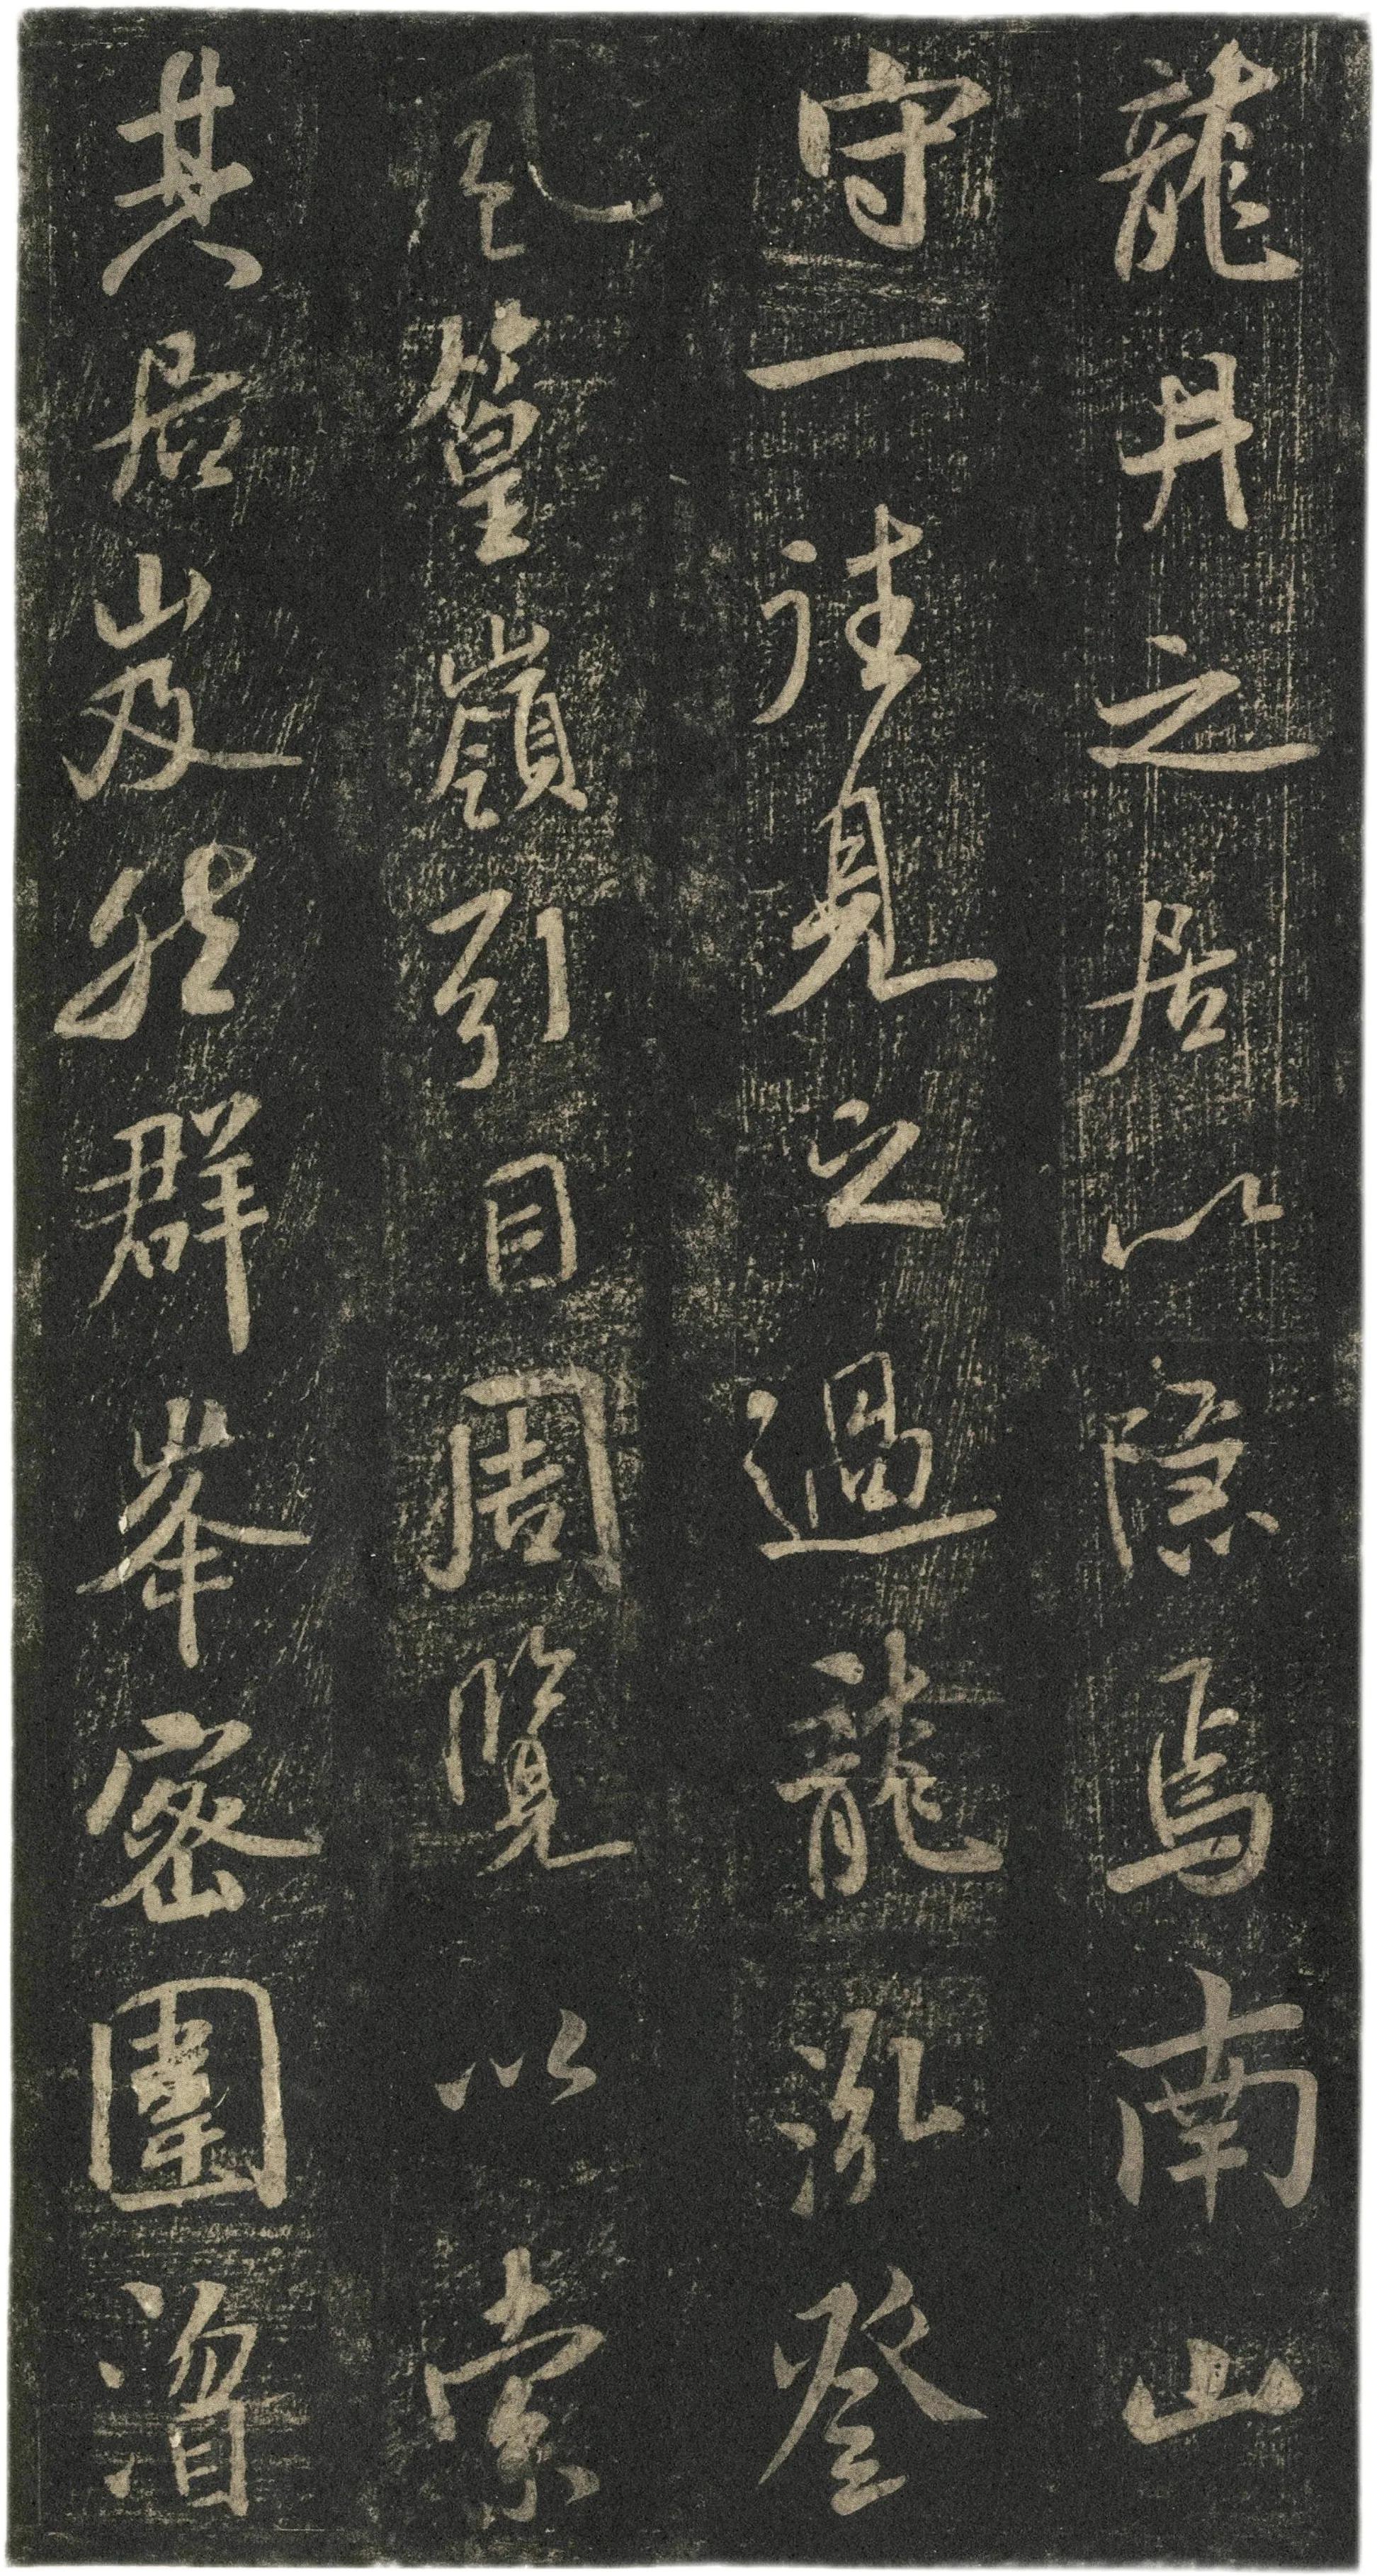 龍井之居以隱焉南山
守一往見之過龍泓登
風篁嶺引目周覽以索
其居岌然群峯密圍